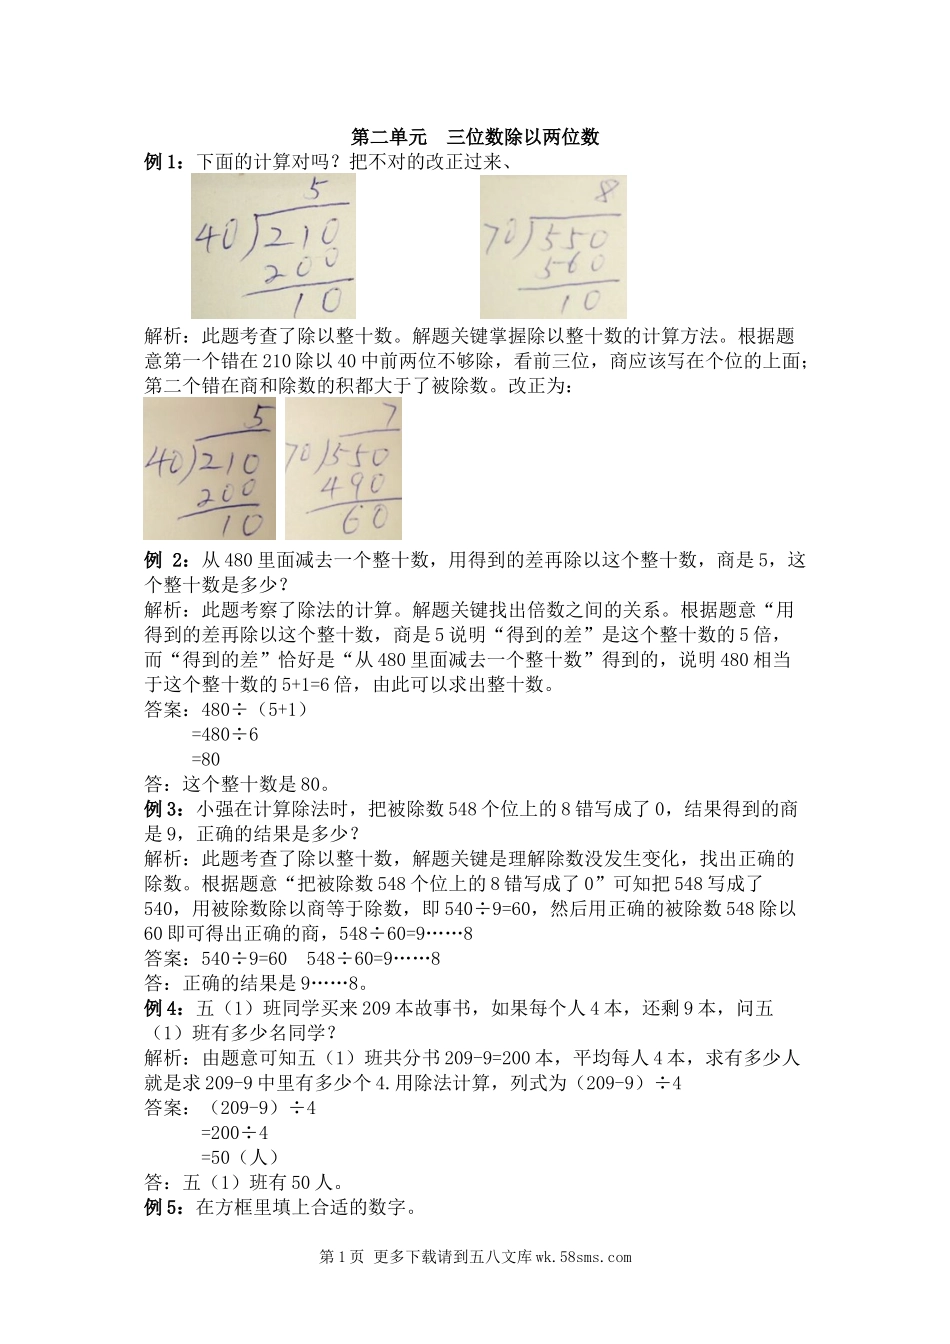 第二单元　三位数除以两位数
例1：下面的计算对吗？把不对的改正过来、
5　8
40)210　70)550
200　560
10　10
解析：此题考查了除以整十数。解题关键掌握除以整十数的计算方法。根据题
意第一个错在210除以40中前两位不够除，看前三位，商应该写在个位的上面；
第二个错在商和除数的积都大于了被除数。改正为：
5　7
40)210　70)550
200　490
10　60
例 2：从480里面减去一个整十数，用得到的差再除以这个整十数，商是5，这
个整十数是多少？
解析：此题考察了除法的计算。解题关键找出倍数之间的关系。根据题意“用
得到的差再除以这个整十数，商是5说明“得到的差”是这个整十数的5倍，
而“得到的差”恰好是“从480里面减去一个整十数”得到的，说明480相当
于这个整十数的5+1=6倍，由此可以求出整十数。
答案：480÷（5+1）
=480÷6
=80
答：这个整十数是80。
例3：小强在计算除法时，把被除数548个位上的8错写成了0，结果得到的商
是9，正确的结果是多少？
解析：此题考查了除以整十数，解题关键是理解除数没发生变化，找出正确的
除数。根据题意“把被除数548个位上的8错写成了0”可知把548写成了
540，用被除数除以商等于除数，即540÷9=60，然后用正确的被除数548除以
60即可得出正确的商，548÷60=9……8
答案：540÷9=60　548÷60=9……8
答：正确的结果是9……8。
例4：五（1）班同学买来209本故事书，如果每个人4本，还剩9本，问五
（1）班有多少名同学？
解析：由题意可知五（1）班共分书209-9=200本，平均每人4本，求有多少人
就是求209-9中里有多少个4.用除法计算，列式为（209-9）÷4
答案：（209-9）÷4
=200÷4
=50（人）
答：五（1）班有50人。
例5：在方框里填上合适的数字。
第1页 更多下载请到五八文库wk.58sms.com